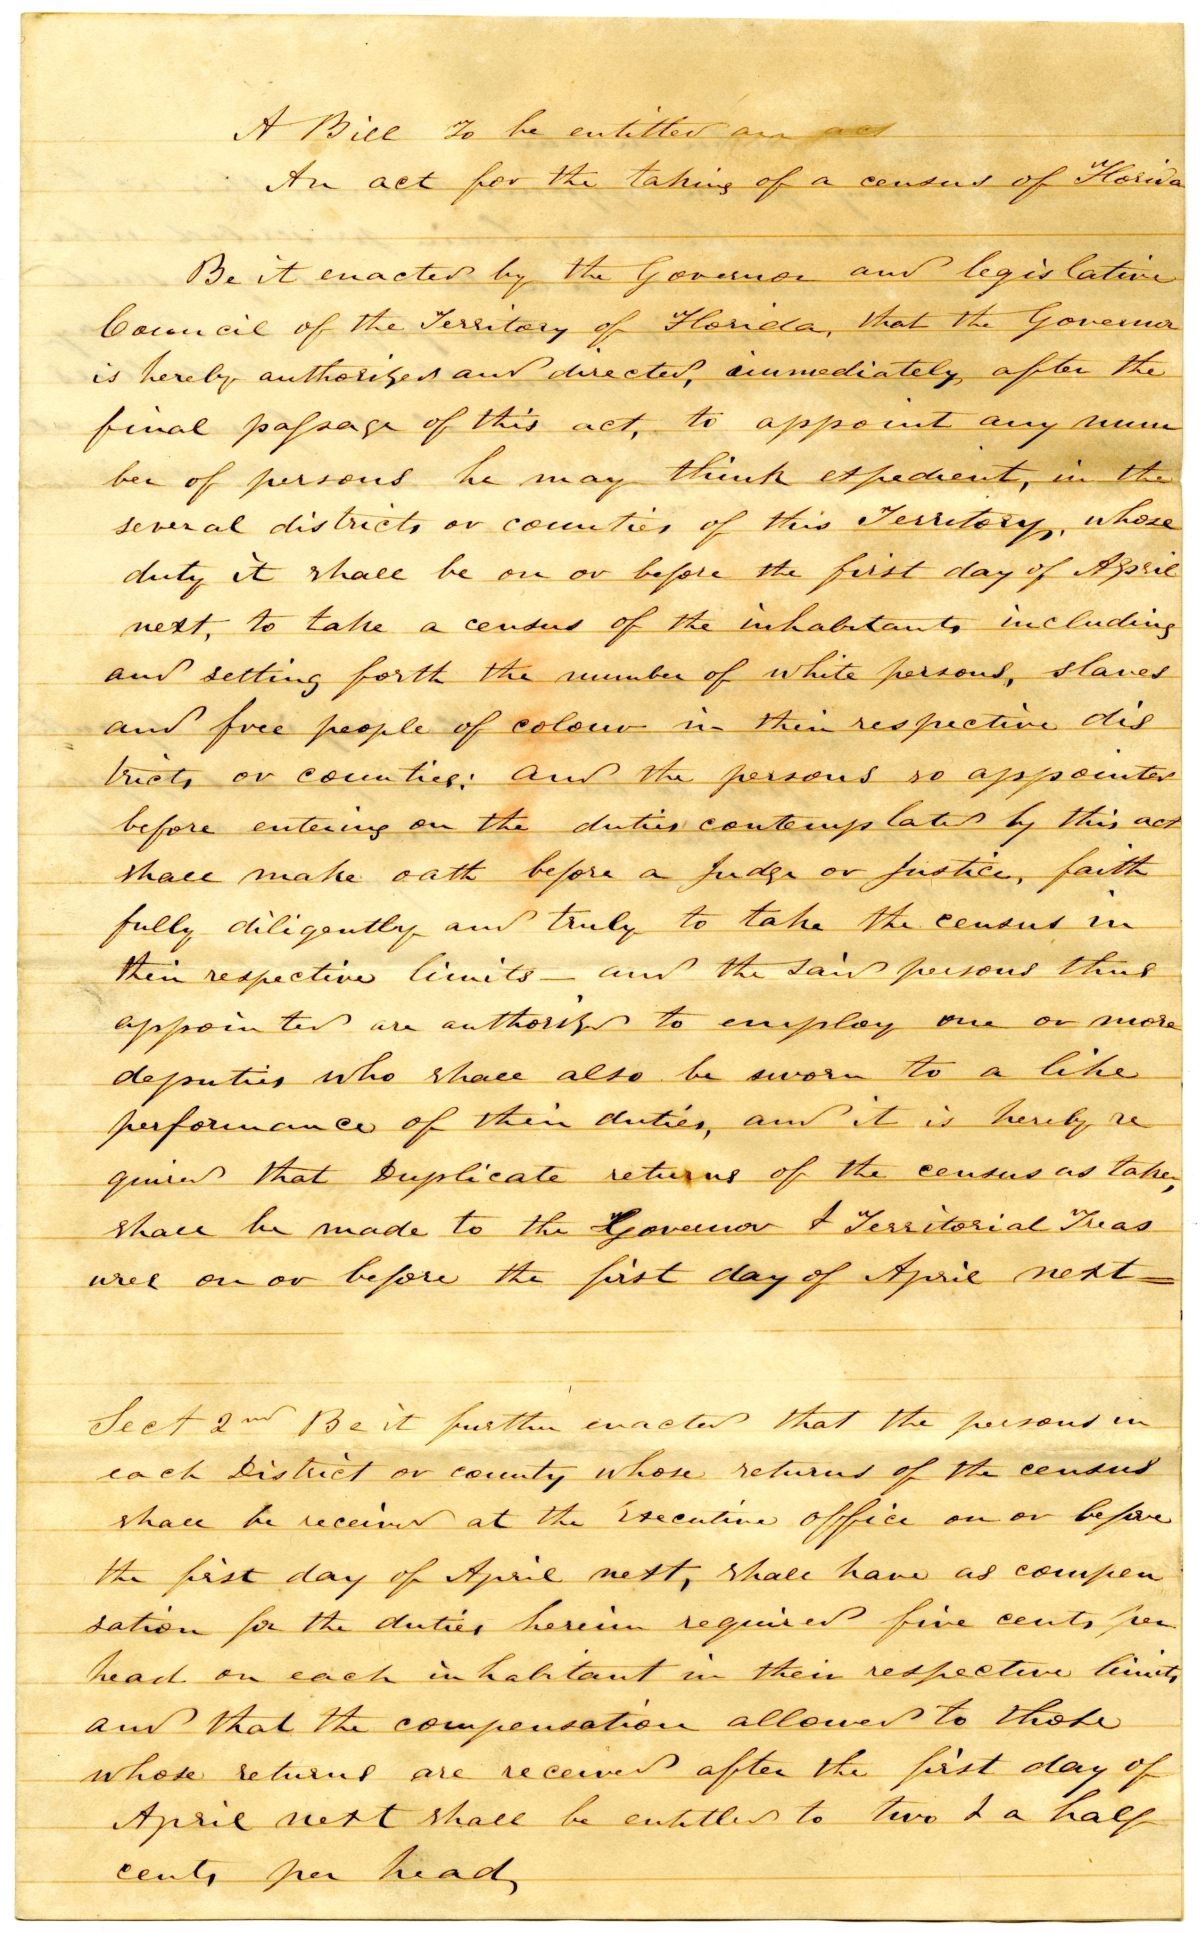 A Bill To be entitled an act
An act for the taking of a census of Florida
Be it enacted by the Governor and legislative
Council of the Territory of Florida, that the Governor
is hereby authorized and directed, immediately after the
final passage of this act, to appoint any num
ber of persons he may think expedient, in the
several districts or counties of this Territory, whose
duty it shall be on or before the first day of April
next, to take a census of the inhabitants including
and setting forth the number of white persons, slaves
and free people of colour in their respective dis
tricts or counties: and the persons so appointed
before entering on the duties contemplated by this act
shall make oath before a Judge or Justice, faith
fully diligently and truly to take the census in
their respective limits — and the said persons thus
appointed are authorized to employ one or more
deputies who shall also be sworn to a like
performance of their duties, and it is hereby re
quired that Duplicate returns of the census as taken,
shall be made to the Governor & Territorial Treas
urer on or before the first day of April next =
Sect 2nd Be it further enacted that the persons in
each District or county whose returns of the census
shall be received at the Executive office on or before
the first day of April next, shall have as compen
sation for the duties herein required five cents per
head on each inhabitant in their respective limits
and that the compensation allowed to those
whose returns are received after the first day of
April next shall be entitled to two & a half
cents per head,